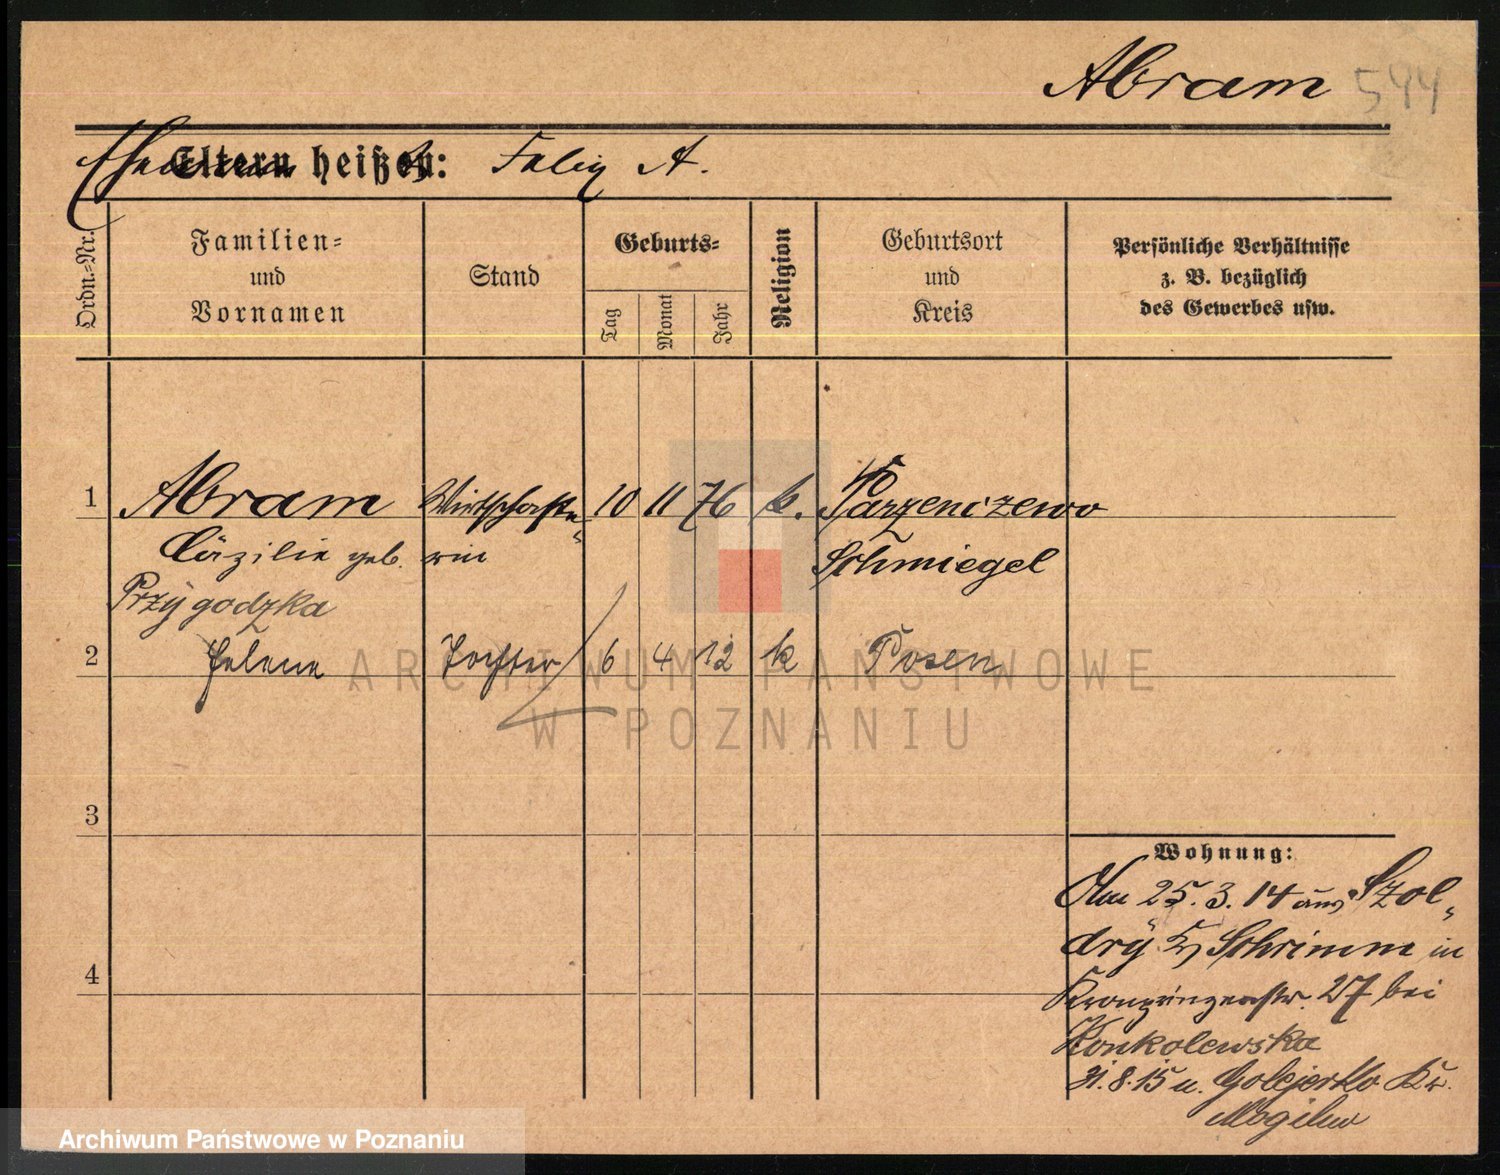 Abram 544
Eltern heißen: Felix A.
Ordn.-Nr.
Familien-
und
Vornamen
Stand
Geburts-
Tag
Monat
Jahr
Religion
Geburtsort
und
Kreis
Persönliche Verhältnisse
z. B. bezüglich
des Gewerbes usw.
1 Abram Wirtschafte- 10 11 76 k. Parzenczewo
Cäzilie geb. rin Schmiegel
Przygodzka
2 Helene Tochter 6 4 12 k Posen
3
4
Wohnung:
Am 25.3.14 aus Szol-
dry Kr Schrimm in
Kronprinzenstr. 27 bei
Konkolewska
31.8.15 n. Golejewko Kr.
Mogilno
ARCHIWUM PAŃSTWOWE
W POZNANIU
Archiwum Państwowe w Poznaniu